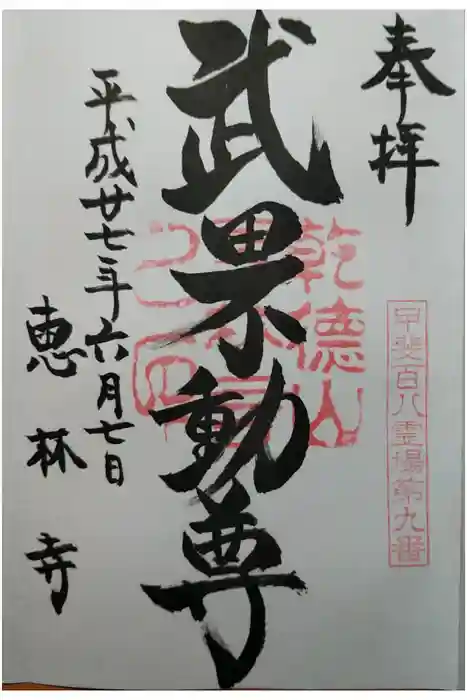 奉拝
甲斐百八霊場第九番
乾徳山
武田不動尊
平成廿七年六月七日
恵林寺